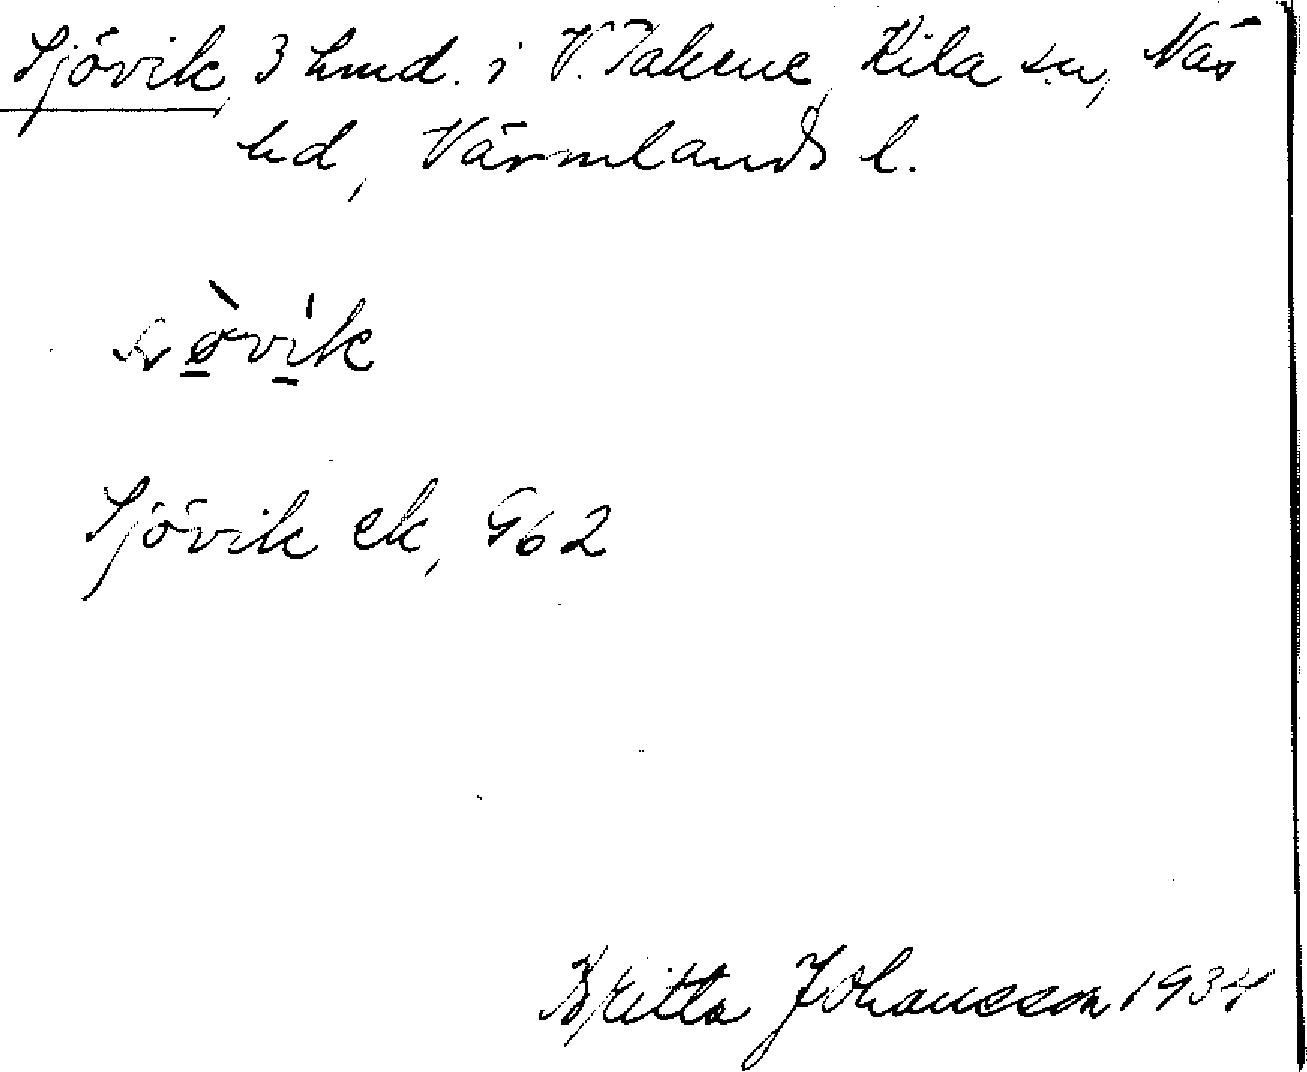 Sjövik, 3 hmd. i V. Takene, Kila sn, Näs
hd, Värmlands l.
Sjövik ek, G62
Britta Johansson 1934